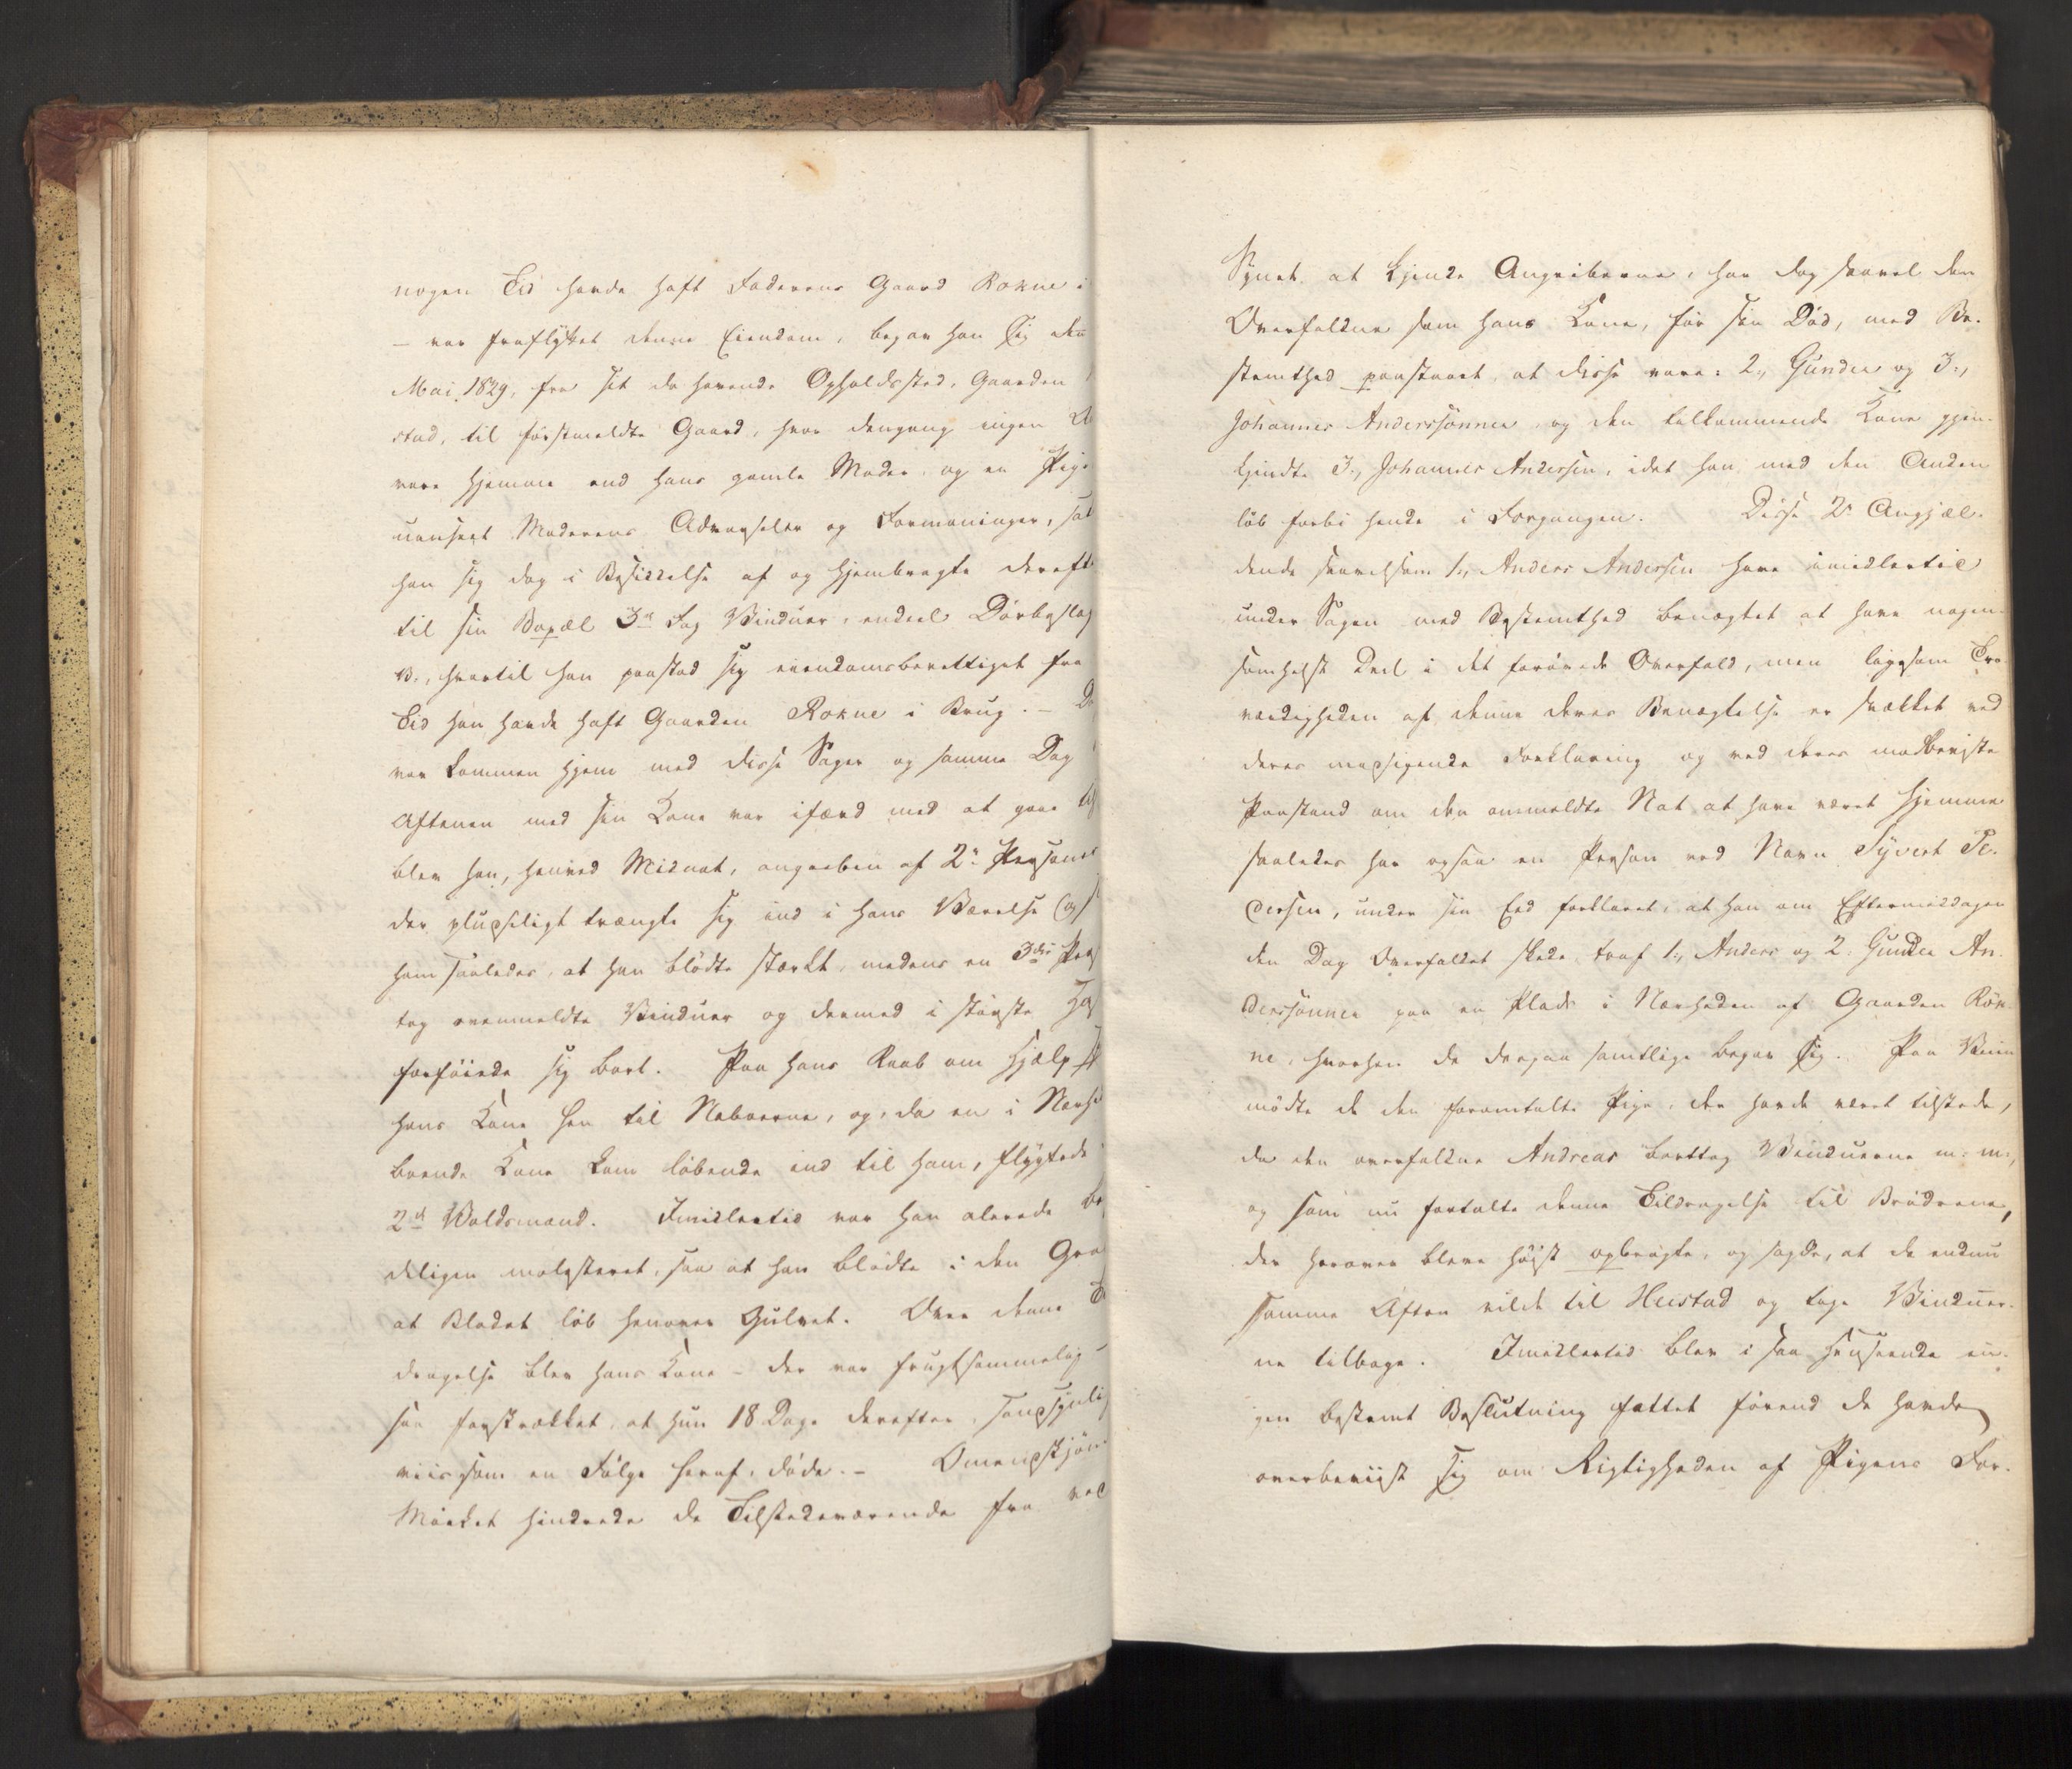 nogen Tid havde haft Faderens Gaard Rokne i
– var fraflyttet denne Eiendom, begav han sig den
Mai 1829, fra sit da havende Opholdssted, Gaarden
stad, til førstmeldte Gaard, hvor dengang ingen
vare hjemme end hans gamle Moder og en Pige
uanseet Moderens Advarsler og Formaninger, sat
han sig dog i Besiddelse af og hjembragte dereft
til sin Bopæl 3de Fag Vinduer, endeel Dørbeslag
hvortil han paastod sig eiendomsberettiget fra
Tid han havde haft Gaarden Rokne i Brug. –
var kommen hjem med disse Sager og samme Dag
Aftenen med sin Kone var ifærd med at gaae
blev han, henved Midnat, angreben af 2de Personer
der pludseligt trængte sig ind i hans Værelse og
ham saaledes, at han blødte stærkt, medens en 3die Pers
tog ovenmeldte Vinduer og dermed i største Has
forføiede sig bort. Paa hans Raab om Hjælp
hans Kone hen til Naboerne, og, da en i Nærhe
boende Kone kom løbende ind til ham, flygtede
2de Voldsmænd. Imidlertid var han allerede
deligen molesteret, saa at han blødte i den Gra
at Blodet løb henover Gulvet. Over denne
dragelse blev hans Kone – der var frugtsommelig –
saa forskrækket, at hun 18 Dage derefter, sandsynlig
viis som en Følge heraf, døde. – Omendskjøn
Mørket hindrede de Tilstedeværende fra ved
Synet at kjende Angriberne, har dog saavel den
Overfaldne som hans Kone, før sin Død, med Be-
stemthed paastaaet, at disse vare: 2., Gunder og 3.,
Johannes Anderssønner, og den tilkommende Kone gjen-
kjendte 3., Johannes Andersen, idet han med den Anden
løb forbi hende i Forgangen. Disse 2de Angjæl-
dende saavelsom 1., Anders Andersen have imidlertid
under Sagen med Bestemthed benægtet at have nogen-
somhelst Deel i det forøvede Overfald, men ligesom Tro-
værdigheden af denne deres Benægtelse er svækket ved
deres modsigende Forklaring og ved deres modbeviste
Paastand om den ommeldte Nat at have været hjemme
saaledes har ogsaa en Person ved Navn Syvert Pe-
dersen, under sin Eed forklaret, at han om Eftermiddagen
den Dag Overfaldet skede, traf 1., Anders og 2. Gunder An-
derssønner paa en Plads i Nærheden af Gaarden Rok-
ne, hvorhen de derpaa samtlige begav sig. Paa Veien
mødte de den foromtalte Pige, der havde været tilstede,
da den overfaldne Andreas borttog Vinduerne m: m:,
og som nu fortalte denne Tildragelse til Brødrene,
der herover bleve høist opbragte, og sagde, at de endnu
samme Aften vilde til Heistad og tage Vinduer-
ne tilbage. Imidlertid blev i saa Henseende in-
gen bestemt Beslutning fattet førend de havde
overbeviist sig om Rigtigheden af Pigens For-